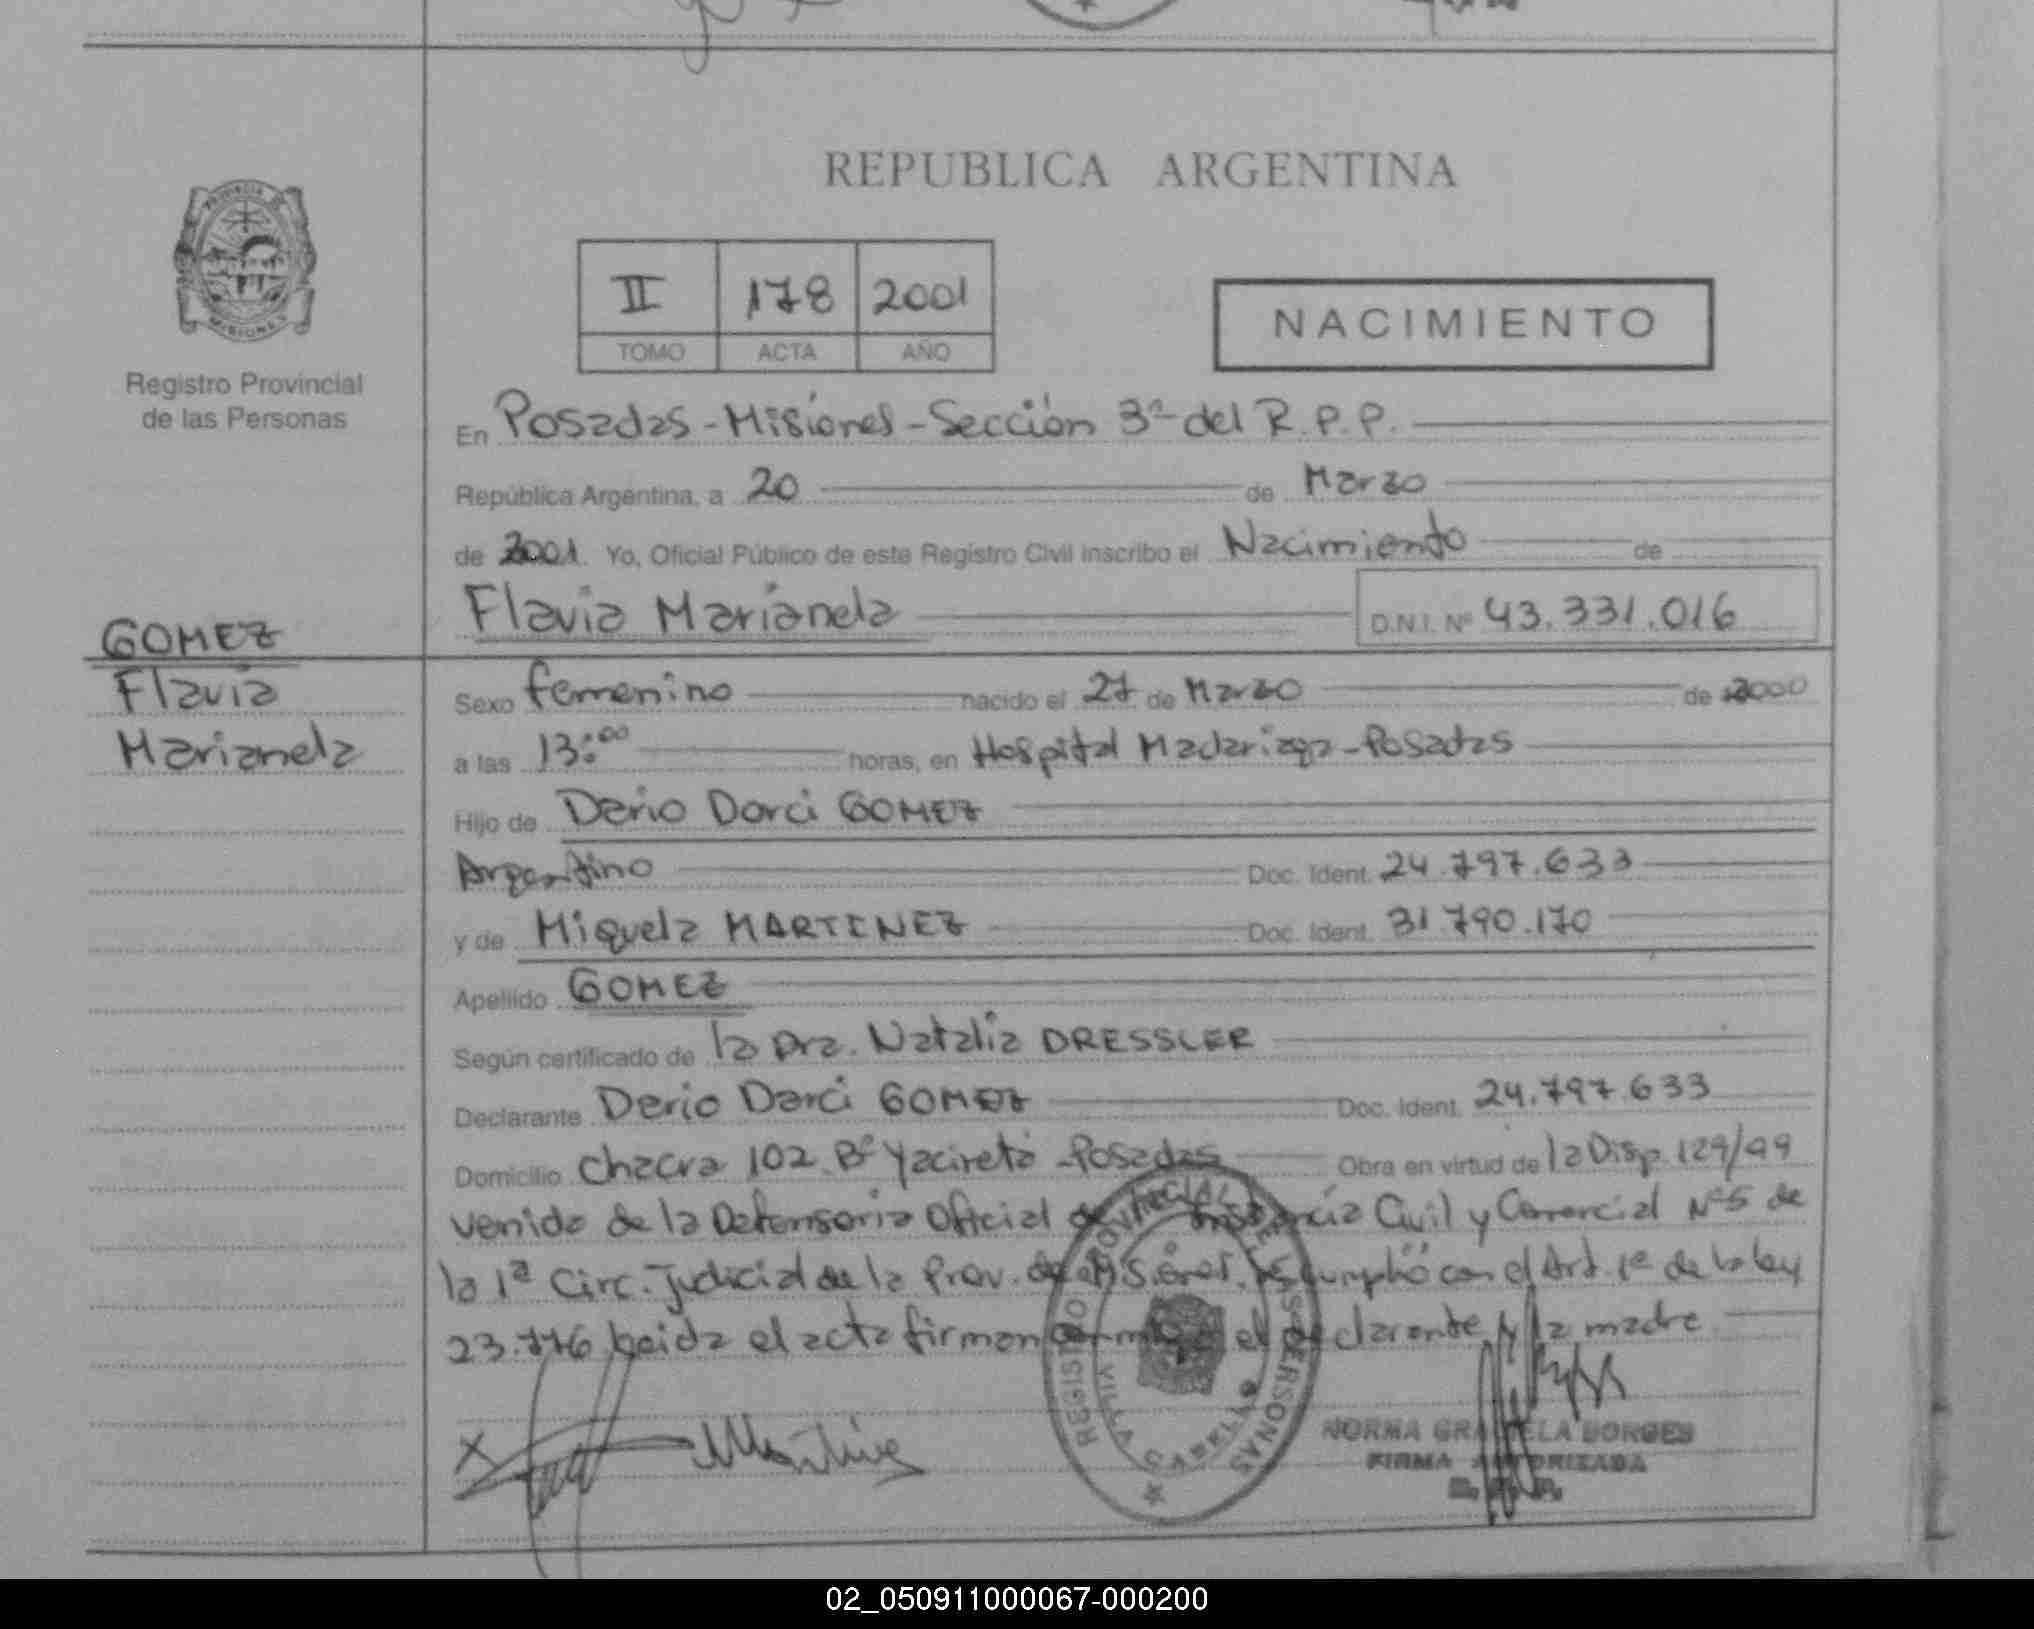 REPUBLICA ARGENTINA
PROVINCIA
MISIONES
Registro Provincial
de las Personas
II 178 2001
TOMO ACTA AÑO
NACIMIENTO
En Posadas - Misiones - Sección 3ª del R.P.P.
República Argentina, a 20 de Marzo
de 2001. Yo, Oficial Público de este Registro Civil inscribo el Nacimiento de
Flavia Marianela D.N.I. Nº 43.331.016
GOMEZ
Flavia
Marianela
Sexo femenino nacido el 27 de Marzo de 2000
a las 13:00 horas, en Hospital Madariaga - Posadas
Hijo de Dario Darci GOMEZ
Argentino Doc. Ident. 24.797.633
y de Miguela MARTINEZ Doc. Ident. 31.790.170
Apellido GOMEZ
Según certificado de la Dra. Natalia DRESSLER
Declarante Dario Darci GOMEZ Doc. Ident. 24.797.633
Domicilio Chacra 102 Bº Yacireta - Posadas Obra en virtud de la Disp. 129/99
venida de la Defensoria Oficial de Instancia Civil y Comercial Nº 5 de
la 1ª Circ. Judicial de la Prov. de Misiones. Se cumplió con el Art. 1º de la ley
23.776 Leida el acta firman el declarante y la madre
REGISTRO PROVINCIAL DE LAS PERSONAS
NORMA GRACIELA BORGES
FIRMA AUTORIZADA
02_050911000067-000200